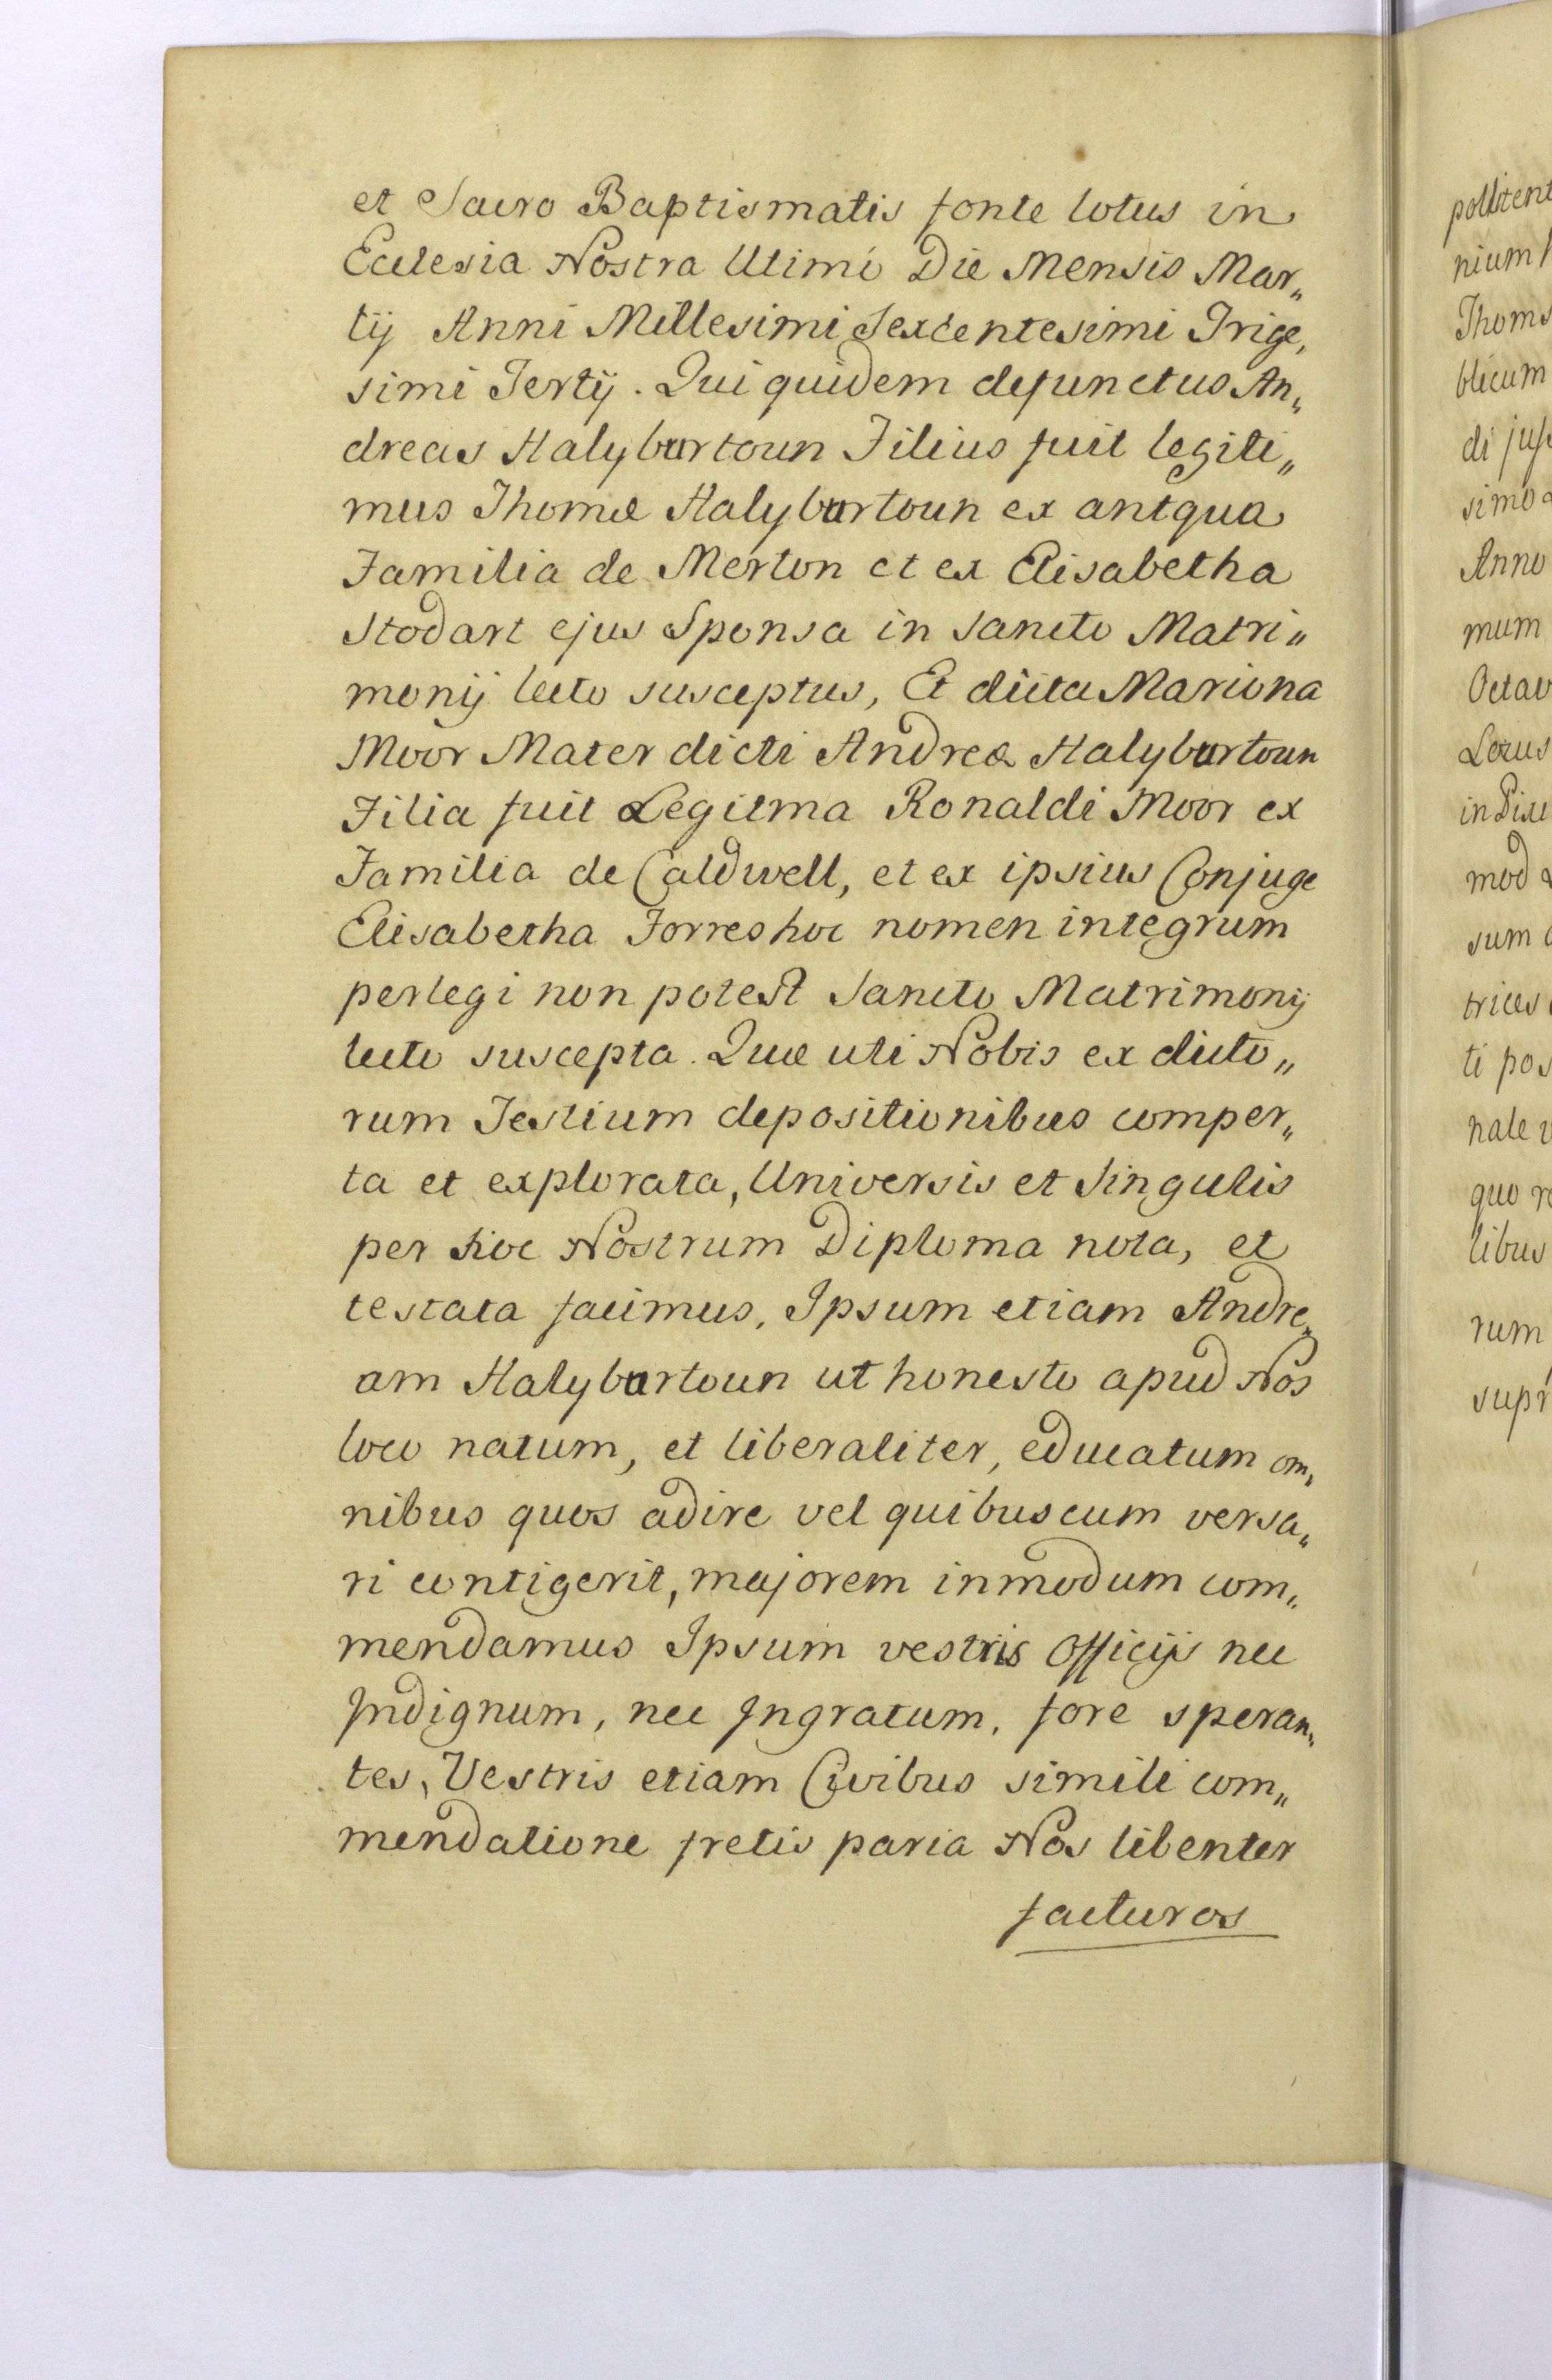 et Sacro Baptismatis fonte lotus in
Ecclesia Nostra Utimi Die Mensis Mar„
tij Anni Millesimi Sexcentesimi Trige,
simi Tertij. Qui quidem defunctus An„
dreas Halyburtoun Filius fuit legiti„
mus Thomæ Halyburtoun ex antqua
Familia de Merton et ex Elisabetha
Stodart ejus Sponsa in Sancto Matri„
monij lecto susceptus, Et dicta Mariona
Moor Mater dicti Andreæ Halyburtoun
Filia fuit Legitma Ronaldi Moor ex
Familia de Caldwell, et ex ipsius Conjuge
Elisabetha Forres hoc nomen integrum
perlegi non potest Sancto Matrimonij
lecto suscepta. Quæ uti Nobis ex dicto„
rum Testium depositionibus comper„
ta et explorata, Universis et Singulis
per hoc Nostrum Diploma nota, et
testata facimus, Ipsum etiam Andre„
am Halyburtoun ut honesto apud Nos
loco natum, et liberaliter, educatum om„
nibus quos adire vel quibuscum versa„
ri contigerit, majorem inmodum com„
mendamus Ipsum vestris Officijs nec
Indignum, nec Ingratum, fore speran„
tes, Vestris etiam Civibus simili com„
mendatione fretis paria Nos libenter
facturos
nium
Thoms
blicum
simo
Anno
mum
Octav
Locus
mod
sum
trices
ti pos
nale
quo
libus
rum